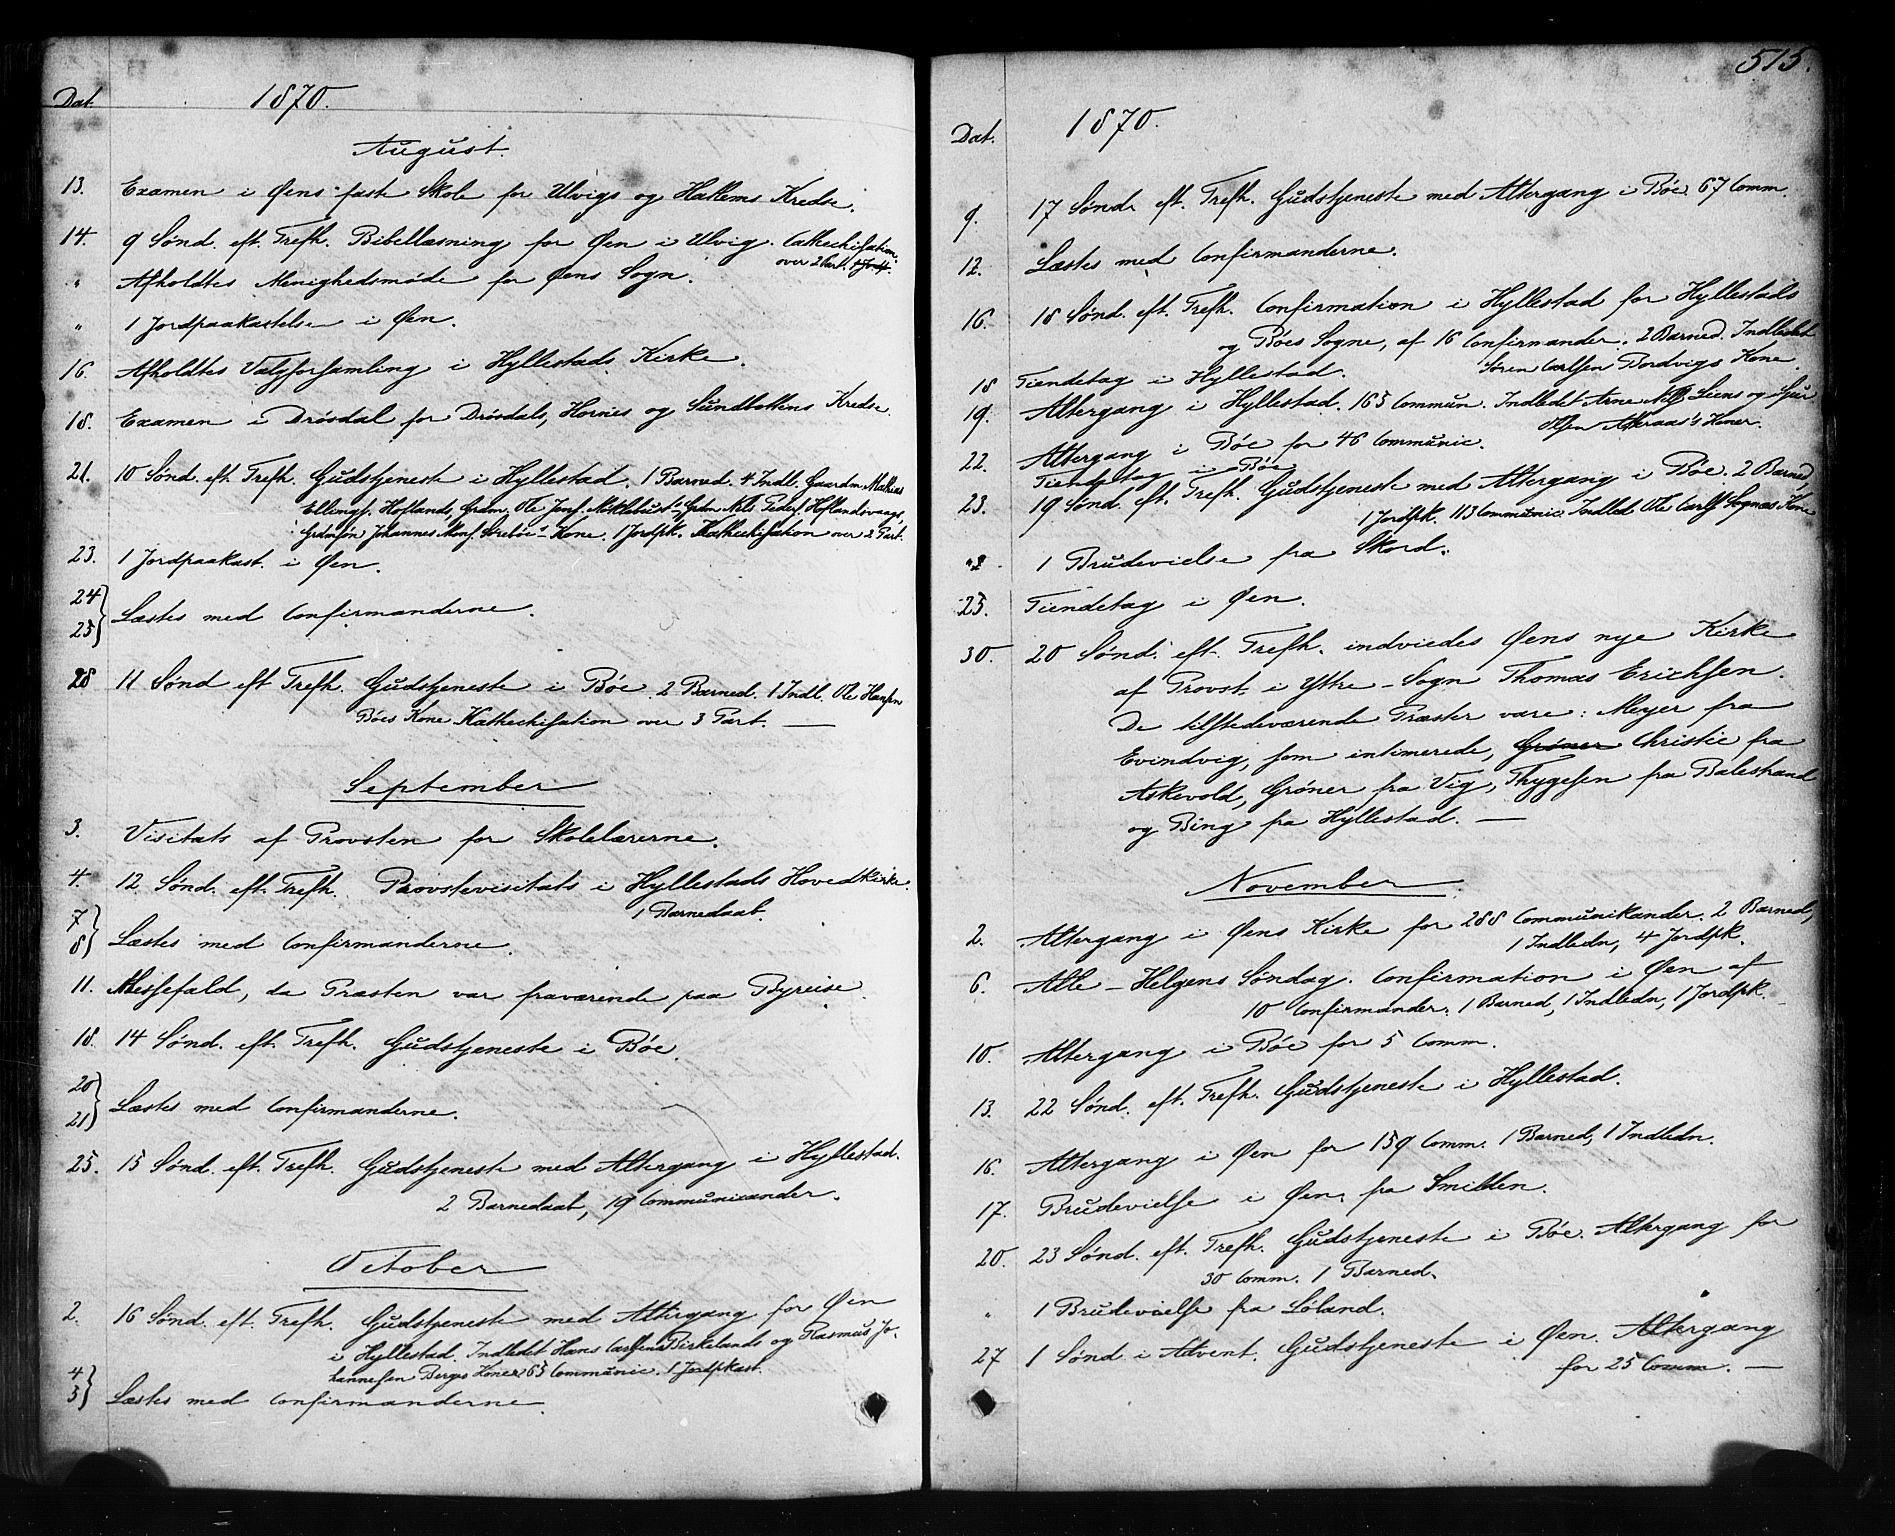 Dat. 1870.
August.
13. Examen i Øens fast Skole for Ulvigs og Hatlems Kredse.
14. 9 Sønd. eft. Trefh. Bibellæsning for Øen i Ulvig. Cathechisation
over 2 Part.
" Afholdtes Menighedsmøde for Øens Sogn.
" 1 Jordpaakastelse i Øen.
16. Afholdtes Valgforsamling i Hyllestads Kirke.
18. Examen i Drösdal for Drösdals, Hornes og Sundbottens Kredse.
21. 10 Sønd. eft. Trefh. Gudstjeneste i Hyllestad. 1 Barned. 4 Indl. Gaardm. Mathias
Ellingf. Hoflands, Grdm. Ole Jonf. Grdm Nils Pederf. Hoflandsvaags,
Johannes Monf. Kone. 1 Jordpk. Kathechisation over 2 Part.
23. 1 Jordpaakast. i Øen.
24
25} Læstes med Confirmanderne.
28 11 Sønd eft Trefh. Gudstjeneste i Bøe. 2 Barned. 1 Indl. Ole Hansen
Bøes Kone Kathechisation over 3 Part. —
September
3. Visitats af Provsten for Skolelærerne.
4. 12 Sønd. eft. Trefh. Provstevisitats i Hyllestads Hovedkirke.
1 Barnedaab.
7
8} Læstes med Confirmanderne.
11. Messefald, da Præsten var fraværende paa Byreise.
18. 14 Sønd. eft. Trefh. Gudstjeneste i Bøe.
20
21} Læstes med Confirmanderne.
25. 15 Sønd. eft. Trefh. Gudstjeneste med Altergang i Hyllestad.
2 Barnedaab, 19 Communicander.
October
2. 16 Sønd. eft. Trefh. Gudstjeneste med Altergang for Øen
i Hyllestad. Indledet Hans Carlsens Birkelands og Rasmus Jo-
hannesen Berges Koner 65 Communic. 1 Jordpkast.
4
5} Læstes med Confirmanderne.
515.
Dat. 1870.
9. 17 Sønd. eft. Trefh. Gudstjeneste med Altergang i Bøe 67 Comm.
12. Læstes med Confirmanderne.
16. 18 Sønd. eft. Trefh. Confirmation i Hyllestad for Hyllestads
og Bøes Sogne, af 16 Confirmander. 2 Barned. Indledet
Søren Carlsen Bordvigs Kone.
18 Tiendetag i Hyllestad.
19. Altergang i Hyllestad. 165 Commun. Indledet Arne og
Olsen Koner.
22. Altergang i Bøe for 46 Communic.
Tiendetag i Bøe
23. 19 Sønd. eft. Trefh. Gudstjeneste med Altergang i Bøe. 2 Barned,
1 Jordpk. 113 Communic. Indled. Ole Carlf. Sognæs Kone
" 1 Brudevielse fra Skord.
25. Tiendetag i Øen.
30. 20 Sønd. eft. Trefh. indviedes Øens nye Kirke
af Provst i Yttre-Sogn Thomas Erichsen.
De tilstedeværende Præster vare: Meyer fra
Evindvig, som intimerede, Grøner Christie fra
Askevold, Grøner fra Vig, Thygesen fra Balestrand
og Bing fra Hyllestad. —
November.
2. Altergang i Øens Kirke for 288 Communikander. 2 Barned,
1 Indledn, 4 Jordpk.
6. Alle-Helgens Søndag. Confirmation i Øen af
10 Confirmander. 1 Barned, 1 Indledn, 1 Jordpk.
10. Altergang i Bøe for 5 Comm.
13. 22 Sønd. eft. Trefh. Gudstjeneste i Hyllestad.
16. Altergang i Øen for 159 Comm. 1 Barned, 1 Indledn.
17. Brudevielse i Øen, fra Smilden.
20. 23 Sønd. eft. Trefh. Gudstjeneste i Bøe. Altergang for
30 Comm. 1 Barned.
" 1 Brudevielse fra Løland.
27 1 Sønd i Advent. Gudstjeneste i Øen. Altergang
for 25 Comm. —